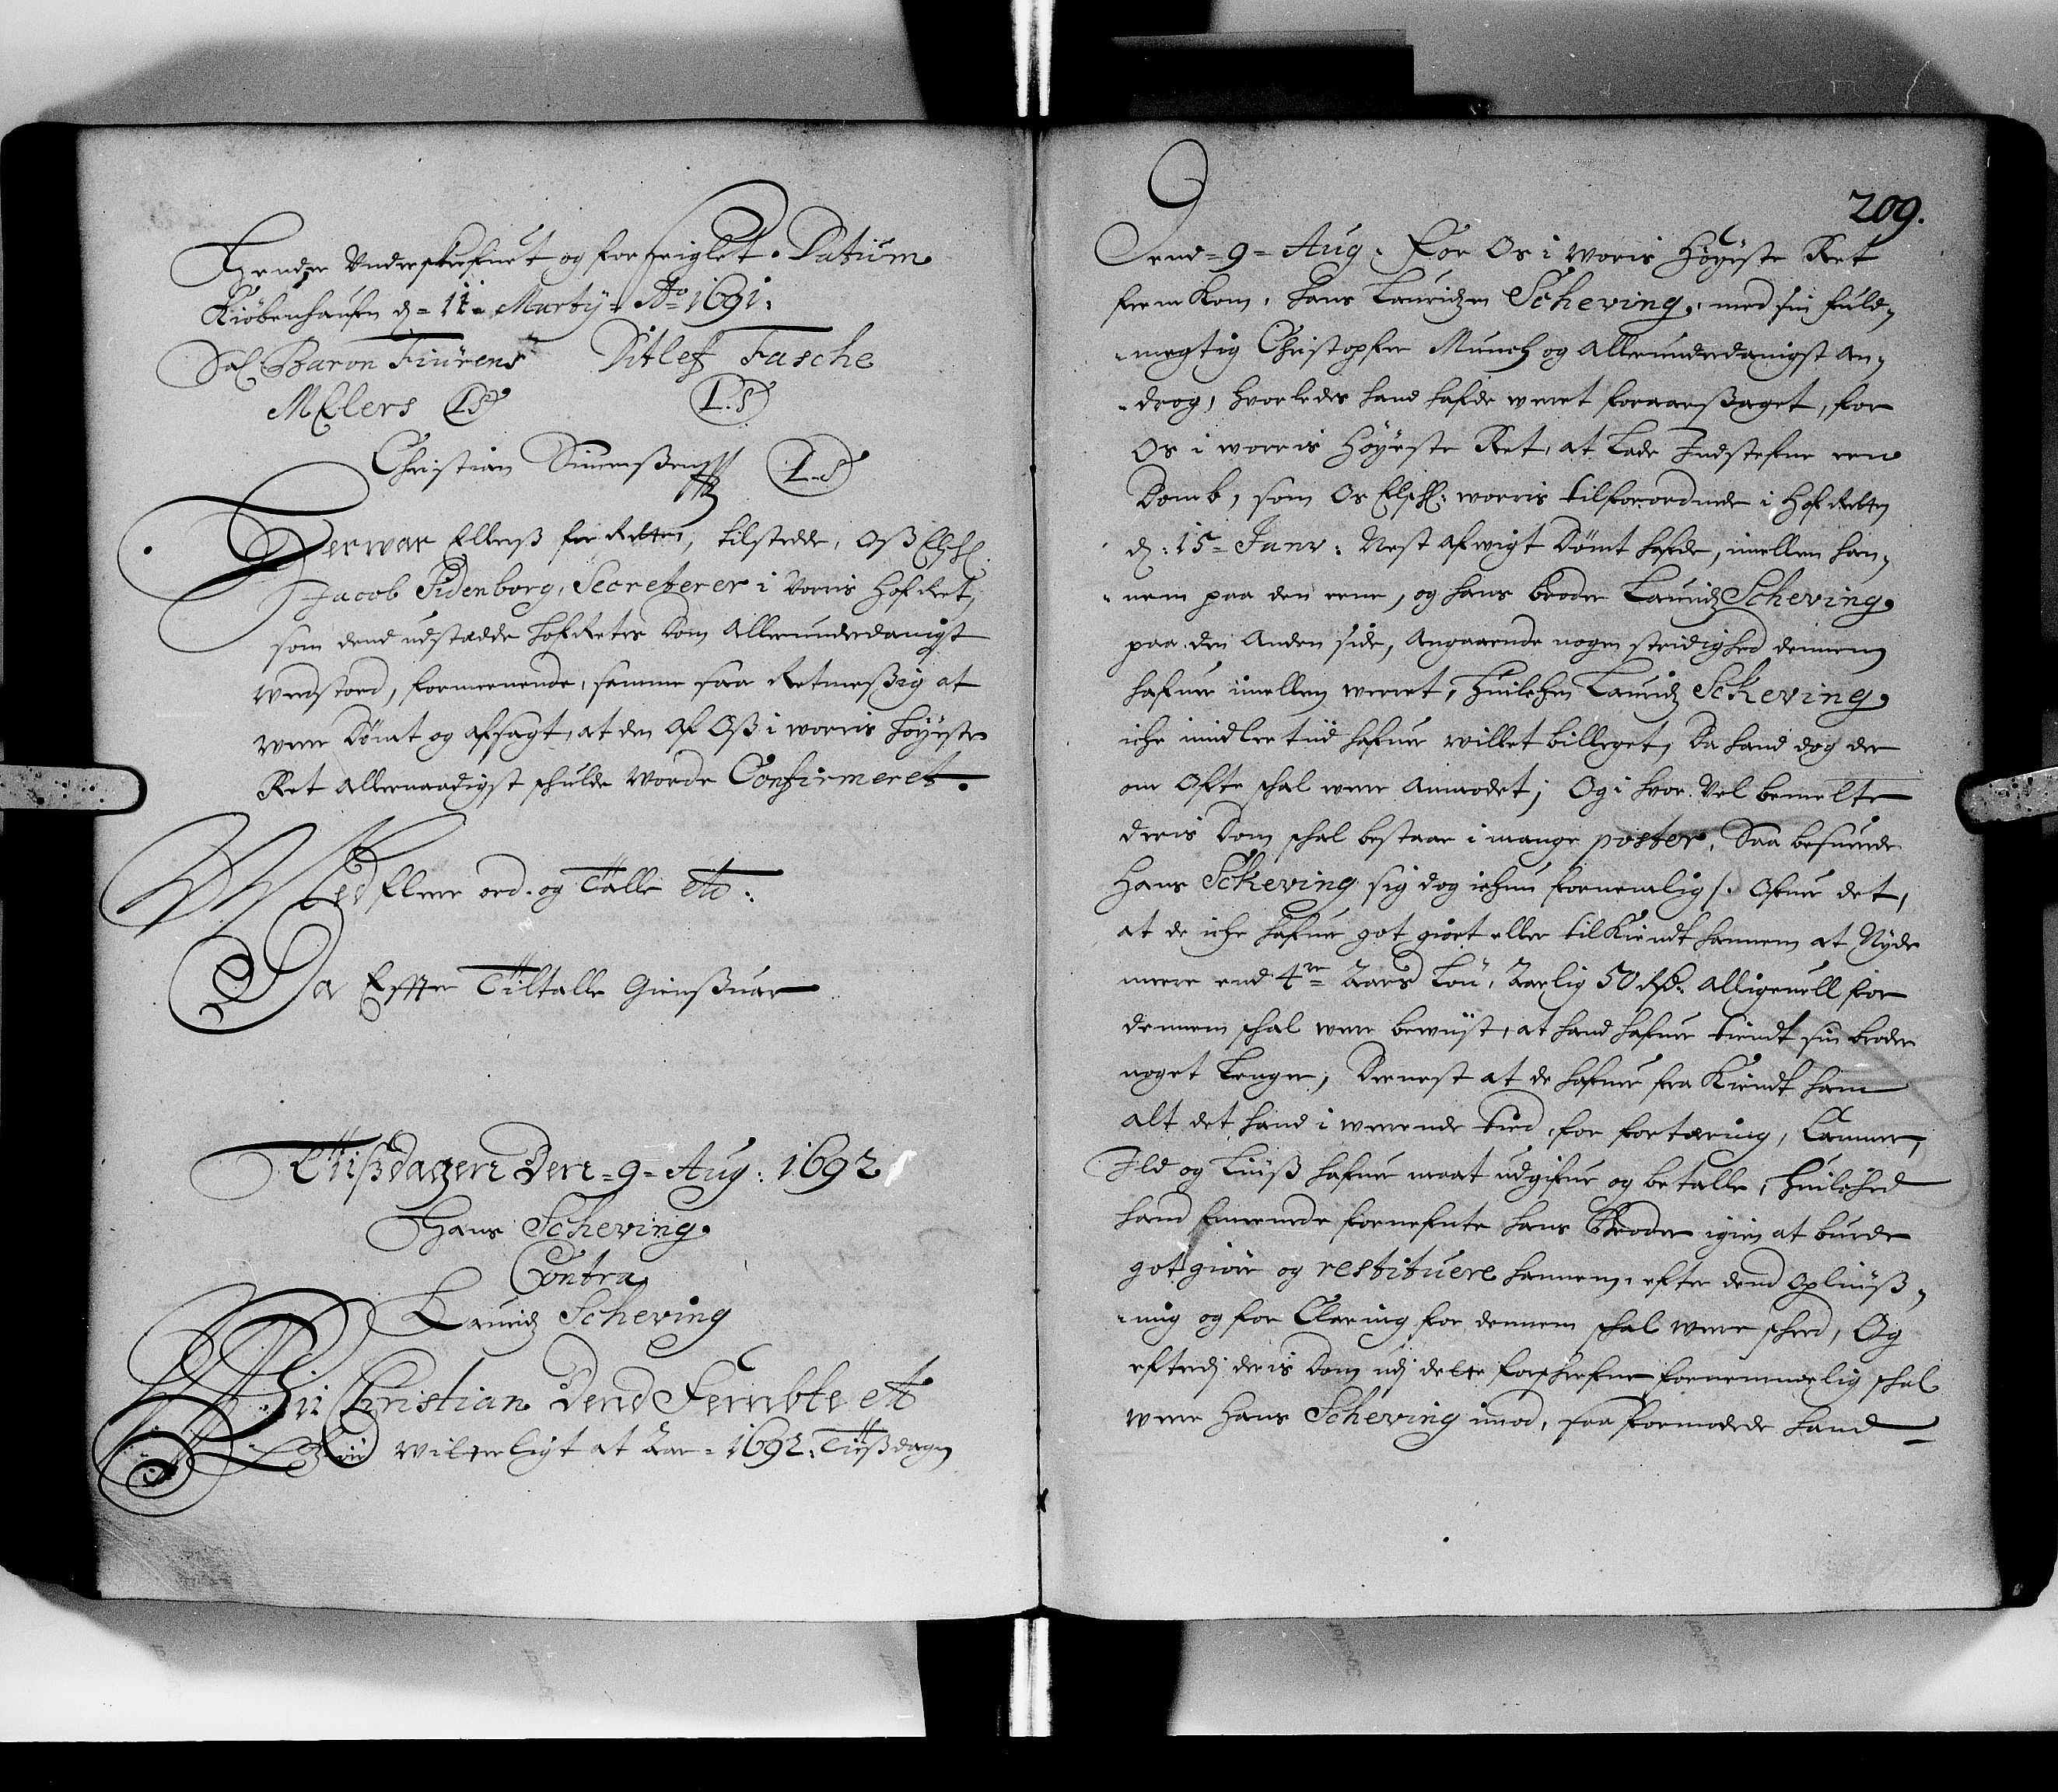 Hender Underskrefuet og forseiglet. Datum
Kiöbenhaufn d = 11 = Marty = Ao 1691:
Sal. Baron Fiürens Ditlef Fasche
MElers L.S. L.S.
Christian Simenßen L.S.
Der war Ellerß for Retten, tilstedde, Oß Elschl.
Jacob Sidenborg, Secreterer i Vorris Hof Ret,
som dend udstædde Hof Retes Dom Allerunderdanigst
wedstoed, formeenende, samme saa Retmeßig at
were Dömt og afsagt, at den af Oß i worris Höyeste
Ret Allernaadigst schulde worde Confirmeret.
Med flere ord. og Talle etc:
Da Effter Tiltalle Giensuar
Tißdagen Den = 9 = Aug: 1692
Hans Scheving.
Contra
Lauridz Scheving
Wii Christian Dend Fembte etc
Giör witterligt at Aar = 1692. Tißdagen
209.
Dend = 9 = Aug: For Os i woris Höyeste Ret
frem Kom, Hans Lauridzen Scheving, med sin fuld-
megtig Christopher Munch og Allerunderdanigst an-
drog, hvorledes hand hafde weret foraarsaget, for
Os i worris Höyeste Ret, at Lade Indstefne een
Domb, som Os Elschl: worris tilforordnede i Hof Retten
d: 15 = Janv: Nest afwigt Dömt hafde, imellem han-
nem paa den eene, og hans broder Lauridz Scheving,
paa den Anden side, Angaaende nogen stridighed dennem
hafuer imellem weret, Huilchen Lauridz Scheving,
iche imidler tiid hafuer willet billeget, Da hand dog der
om Ofte schal were Anmodet; Og i hvor Vel bemelte
deris Dom schal bestaae i mange poster, Saa besuerde
Hans Scheving sig dog ichun fornemlig /: Ofuer det,
at de iche hafuer got giort eller til Kiendt hannem at Nyde
meere end 4re Aars Lön, Aarlig 50 Rd. Alligeuell for
dennem schal were bewiist, at hand hafuer tient sin broder
noget Lenger; Dernest at de hafuer fra Kiendt ham
alt det hand i werende tied, for fortæring, Cammer,
Ild og Liuß hafuer maat udgifue og betalle, Huilched
hand formeente fornefnte hans Broder igien at burde
got giöre og restituere hannem, efter dend Opliuß-
ning og for Claring for dennem schal were scheed, Og
efterdj deris Dom udj dette forschrefne fornemmelig schal
were Hans Scheving imod, saa formodede hand